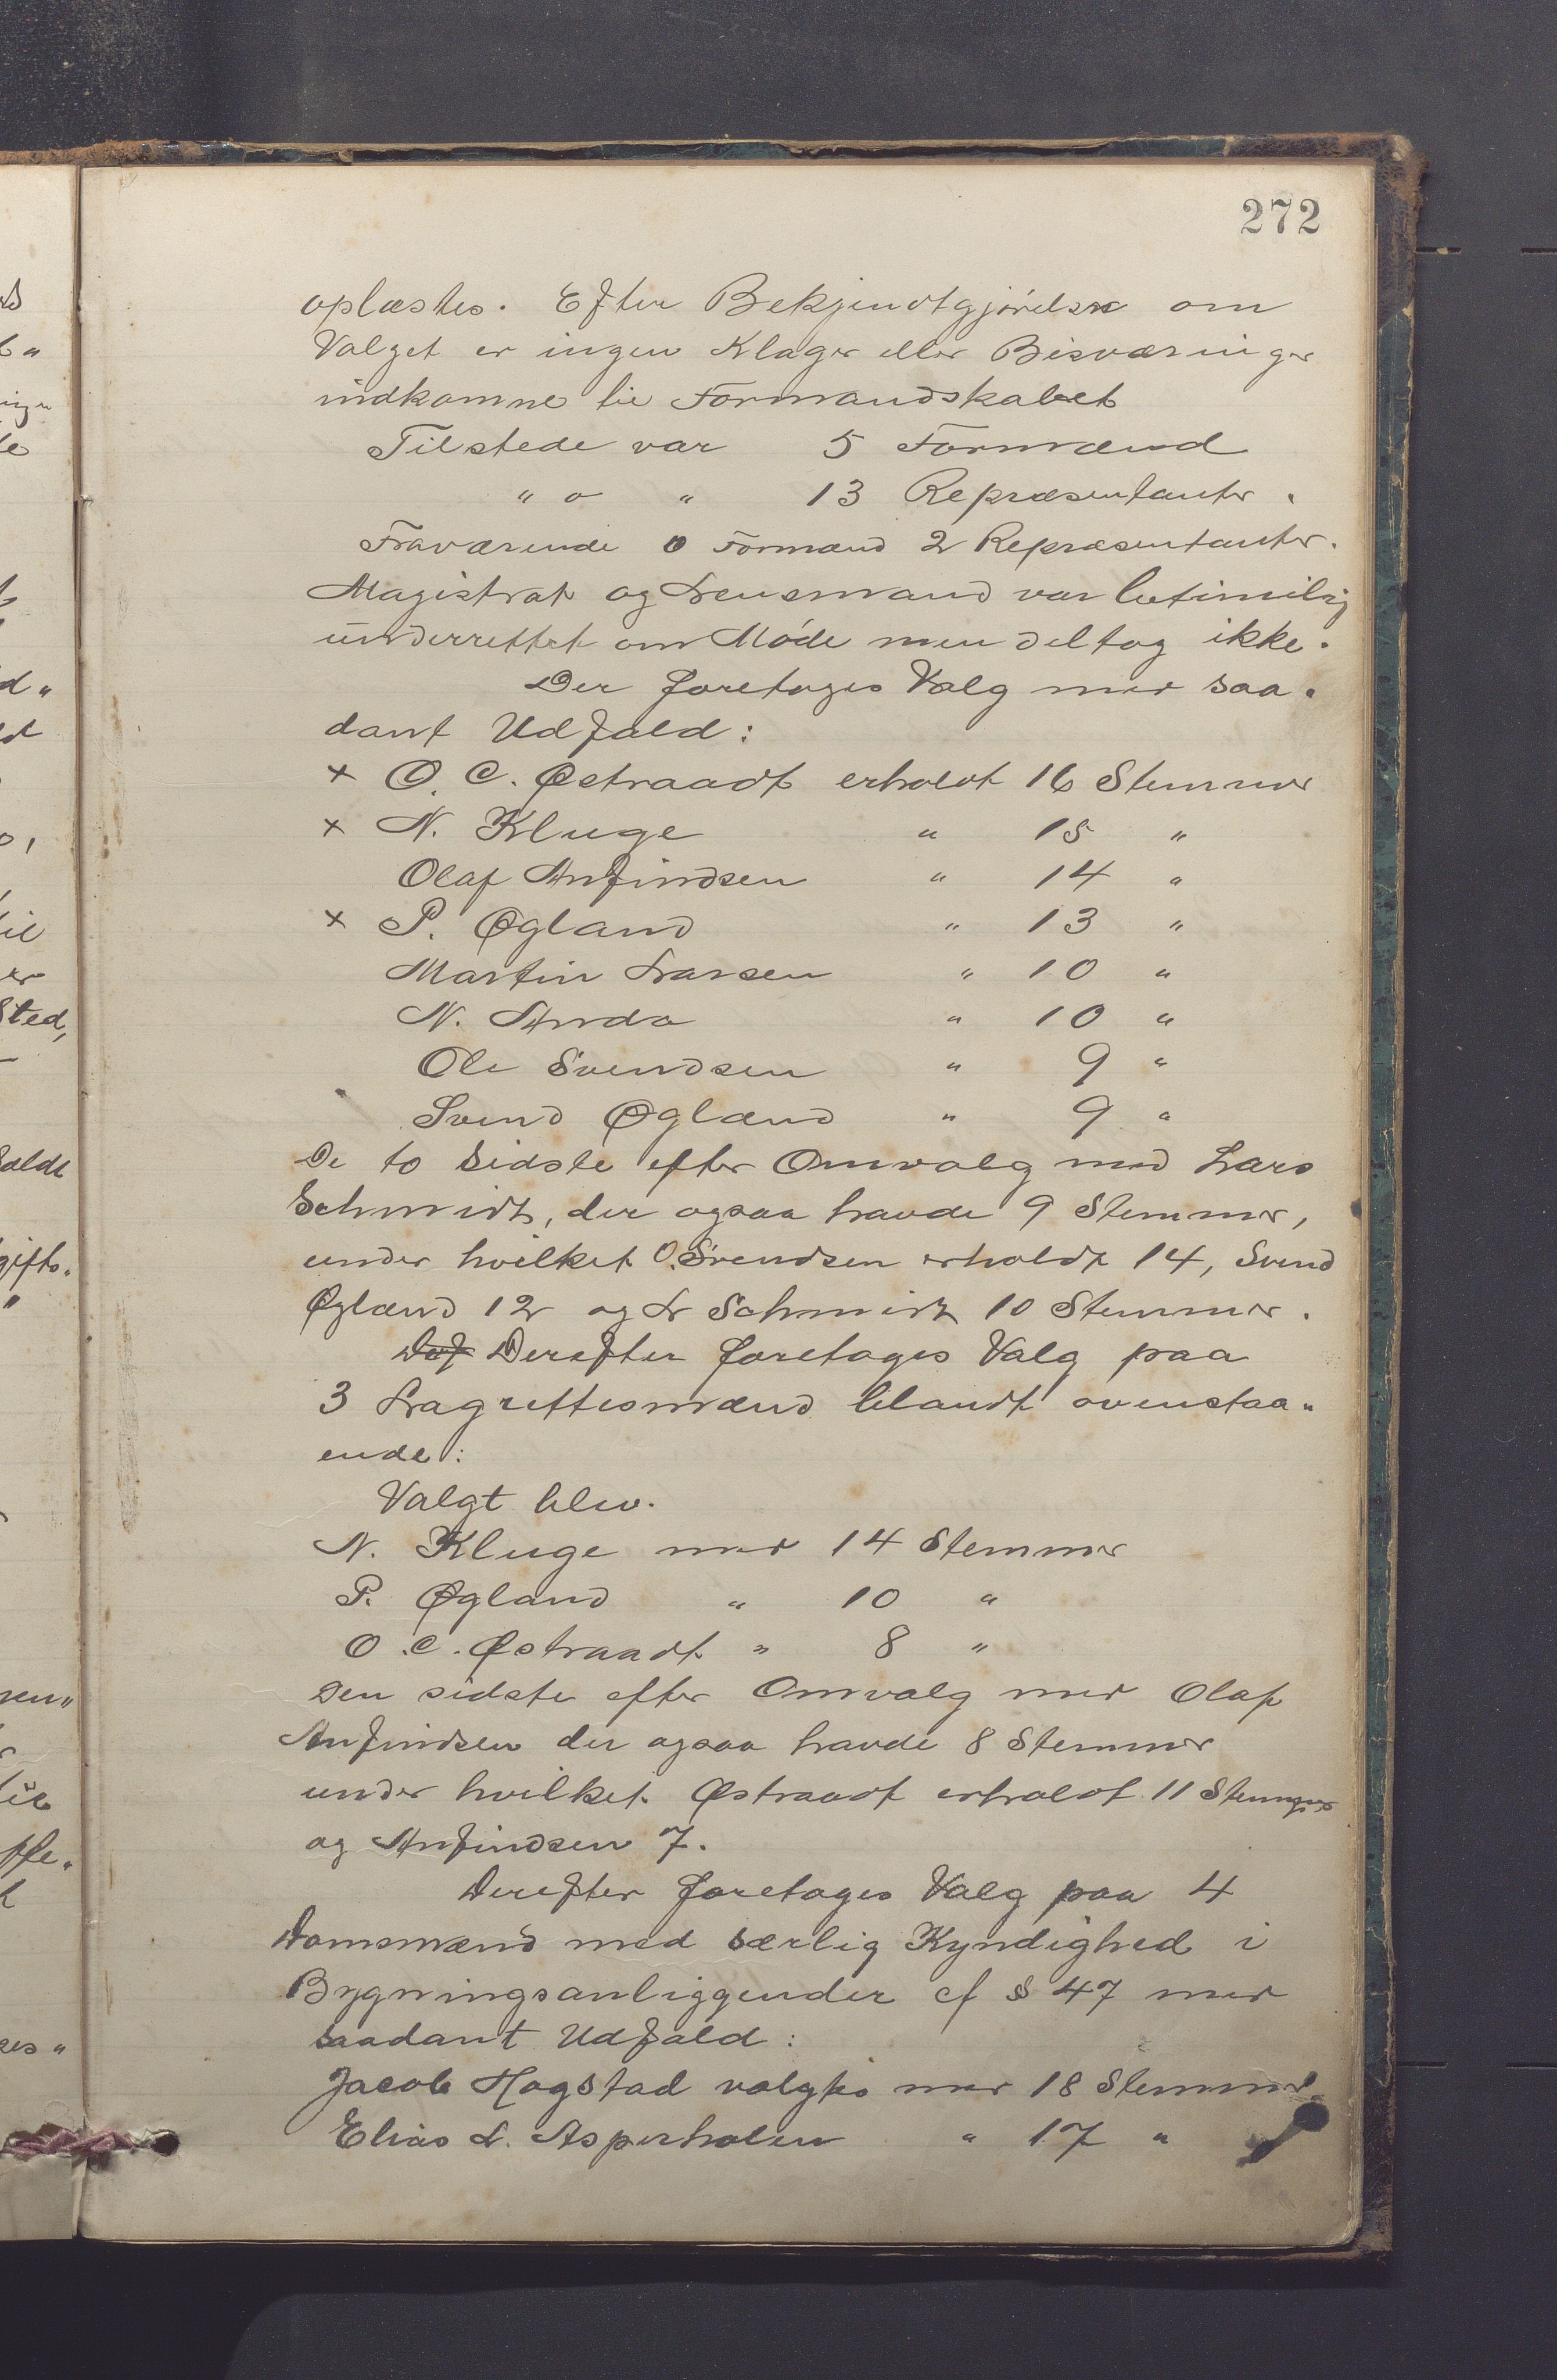 272
oplæstes. Efter Bekjendtgjörelse om
Valget er ingen Klager eller Besværinger
indkomne til Formandskabet
Tilstede var 5 Formænd
" o " 13 Repræsentanter.
Fraværende 0 Formænd 2 Repræsentanter.
Magistrat og Lensmand var betimelig
underrettet om Möde men deltog ikke.
Der foretages Valg med saa"
dant Udfald:
x O. C. Østraadt erholdt 16 Stemmer
x N. Kluge " 15 "
Olaf Anfindsen " 14 "
x P. Øgland " 13 "
Martin Larsen " 10 "
N. Anda " 10 "
Ole Svendsen " 9 "
Svend Øglænd " 9 "
De to sidste efter Omvalg med Lars
Schmidt, der ogsaa havde 9 Stemmer,
under hvilket O. Svendsen erholdt 14, Svend
Øglænd 12 og L Schmidt 10 Stemmer.
Derefter foretages Valg paa
3 Lagrettesmænd blandt ovenstaa"
ende:
Valgt blev.
N. Kluge med 14 Stemmer
P. Øgland " 10 "
O. C. Østraadt " 8 "
Den sidste efter Omvalg med Olaf
Anfindsen der ogsaa havde 8 Stemmer
under hvilket Østraadt erholdt 11 Stemmer
og Anfindsen 7.
Derefter foretages Valg paa 4
Domsmænd med særlig Kyndighed i
Bygningsanliggender cf § 47 med
saadant Udfald:
Jacob Hogstad valgtes med 18 Stemmer
Elias L. Asperholen " 17 "